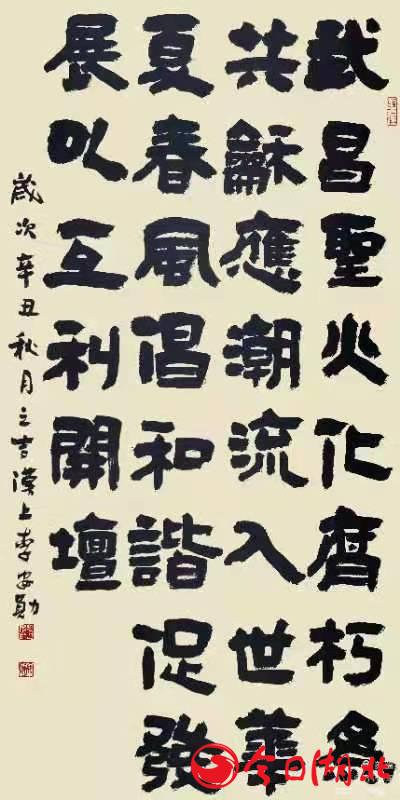 武昌聖火化腐朽為
共龢應潮流入世華
夏春風倡和諧促發
展以互利開壇
歲次辛丑秋月之吉漢上李安勛
今日湖北